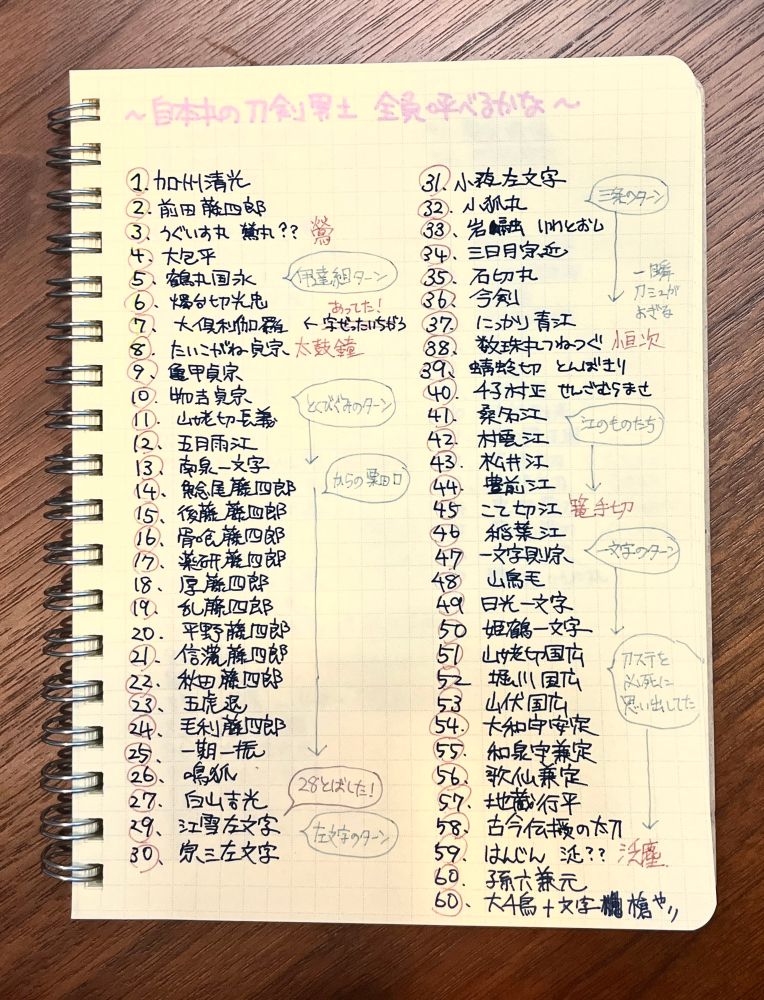 ～自本丸の刀剣男士 全員呼べるかな～
1. 加州清光
2. 前田藤四郎
3. うぐいす丸 鶯丸?? 鶯
4. 大包平
5. 鶴丸国永
伊達組ターン
6. 燭台切光忠
あってた!
7. 大倶利伽羅 ← 字ぜったいちがう
8. たいこがね貞宗 太鼓鐘
9. 亀甲貞宗
10. 物吉貞宗
とくびぐみのターン
11. 山姥切長義
12. 五月雨江
13. 南泉一文字
からの粟田口
14. 鯰尾藤四郎
15. 後藤藤四郎
16. 骨喰藤四郎
17. 薬研藤四郎
18. 厚藤四郎
19. 乱藤四郎
20. 平野藤四郎
21. 信濃藤四郎
22. 秋田藤四郎
23. 五虎退
24. 毛利藤四郎
25. 一期一振
26. 鳴狐
27. 白山吉光
28とばした!
29. 江雪左文字
左文字のターン
30. 宗三左文字
31. 小夜左文字
三条のターン
32. 小狐丸
33. 岩融 いわとおし
34. 三日月宗近
35. 石切丸
一瞬
刀ミュが
よぎる
36. 今剣
37. にっかり青江
38. 数珠丸つねつぐ 恒次
39. 蜻蛉切 とんぼきり
40. 千子村正 せんごむらまさ
41. 桑名江
江のものたち
42. 村雲江
43. 松井江
44. 豊前江
45 こて切江 篭手切
46 稲葉江
47 一文字則宗
一文字のターン
48 山鳥毛
49 日光一文字
50 姫鶴一文字
51 山姥切国広
刀ステを
必死に
思い出してた
52 堀川国広
53. 山伏国広
54. 大和守安定
55. 和泉守兼定
56. 歌仙兼定
57. 地蔵行平
58. 古今伝授の太刀
59. はんじん 泛?? 泛塵
60. 孫六兼元
60. 大千鳥十文字 槍や!!